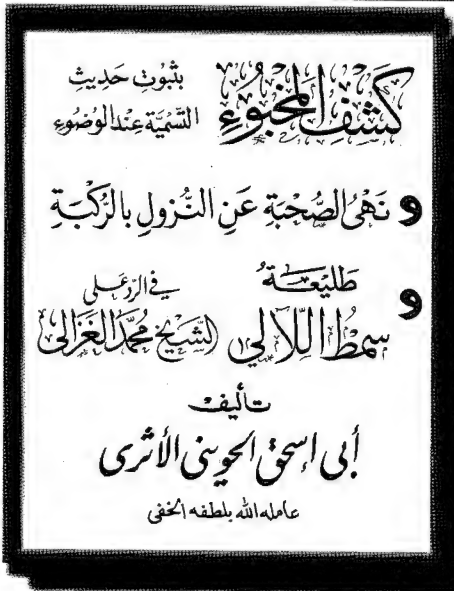 كَشْفُ المَخْبُوءِ بثُبُوتِ حَدِيثِ
التَّسْمِيَّةِ عِنْدَ الوُضُوءِ
و نَهْىُ الصُّحْبَةِ عَنِ النُّزُولِ بِالرُّكْبَةِ
و طَلِيعَةُ
سِمْطُ اللَّآلِي فِي الرَّدِّ عَلَى
الشَّيْخِ مُحَمَّد الغَزَالِى
تأليف
أبى إسحق الحوينى الأثرى
عامله الله بلطفه الخفى